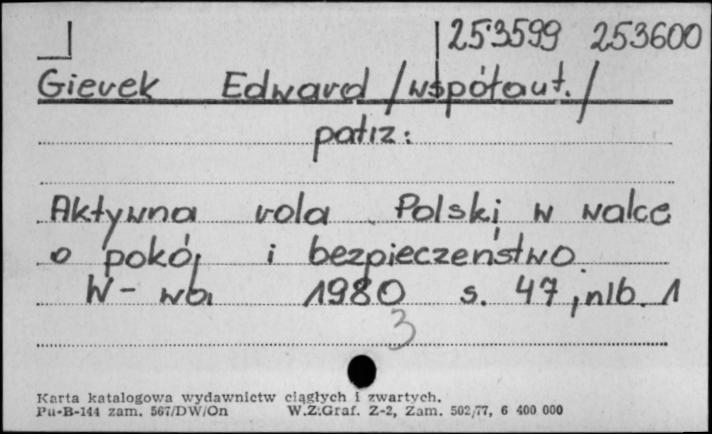 253599 253600
Gierek Edward /współaut./
patrz:
Aktywna rola Polski w walce
o pokój i bezpieczeństwo.
W-wa 1980 s. 47, nlb. 1
3
Karta katalogowa wydawnictw ciągłych i zwartych.
Pu-B-144 zam. 567/DW/On W.Z.Graf. Z-2, Zam. 502/77, 6 400 000